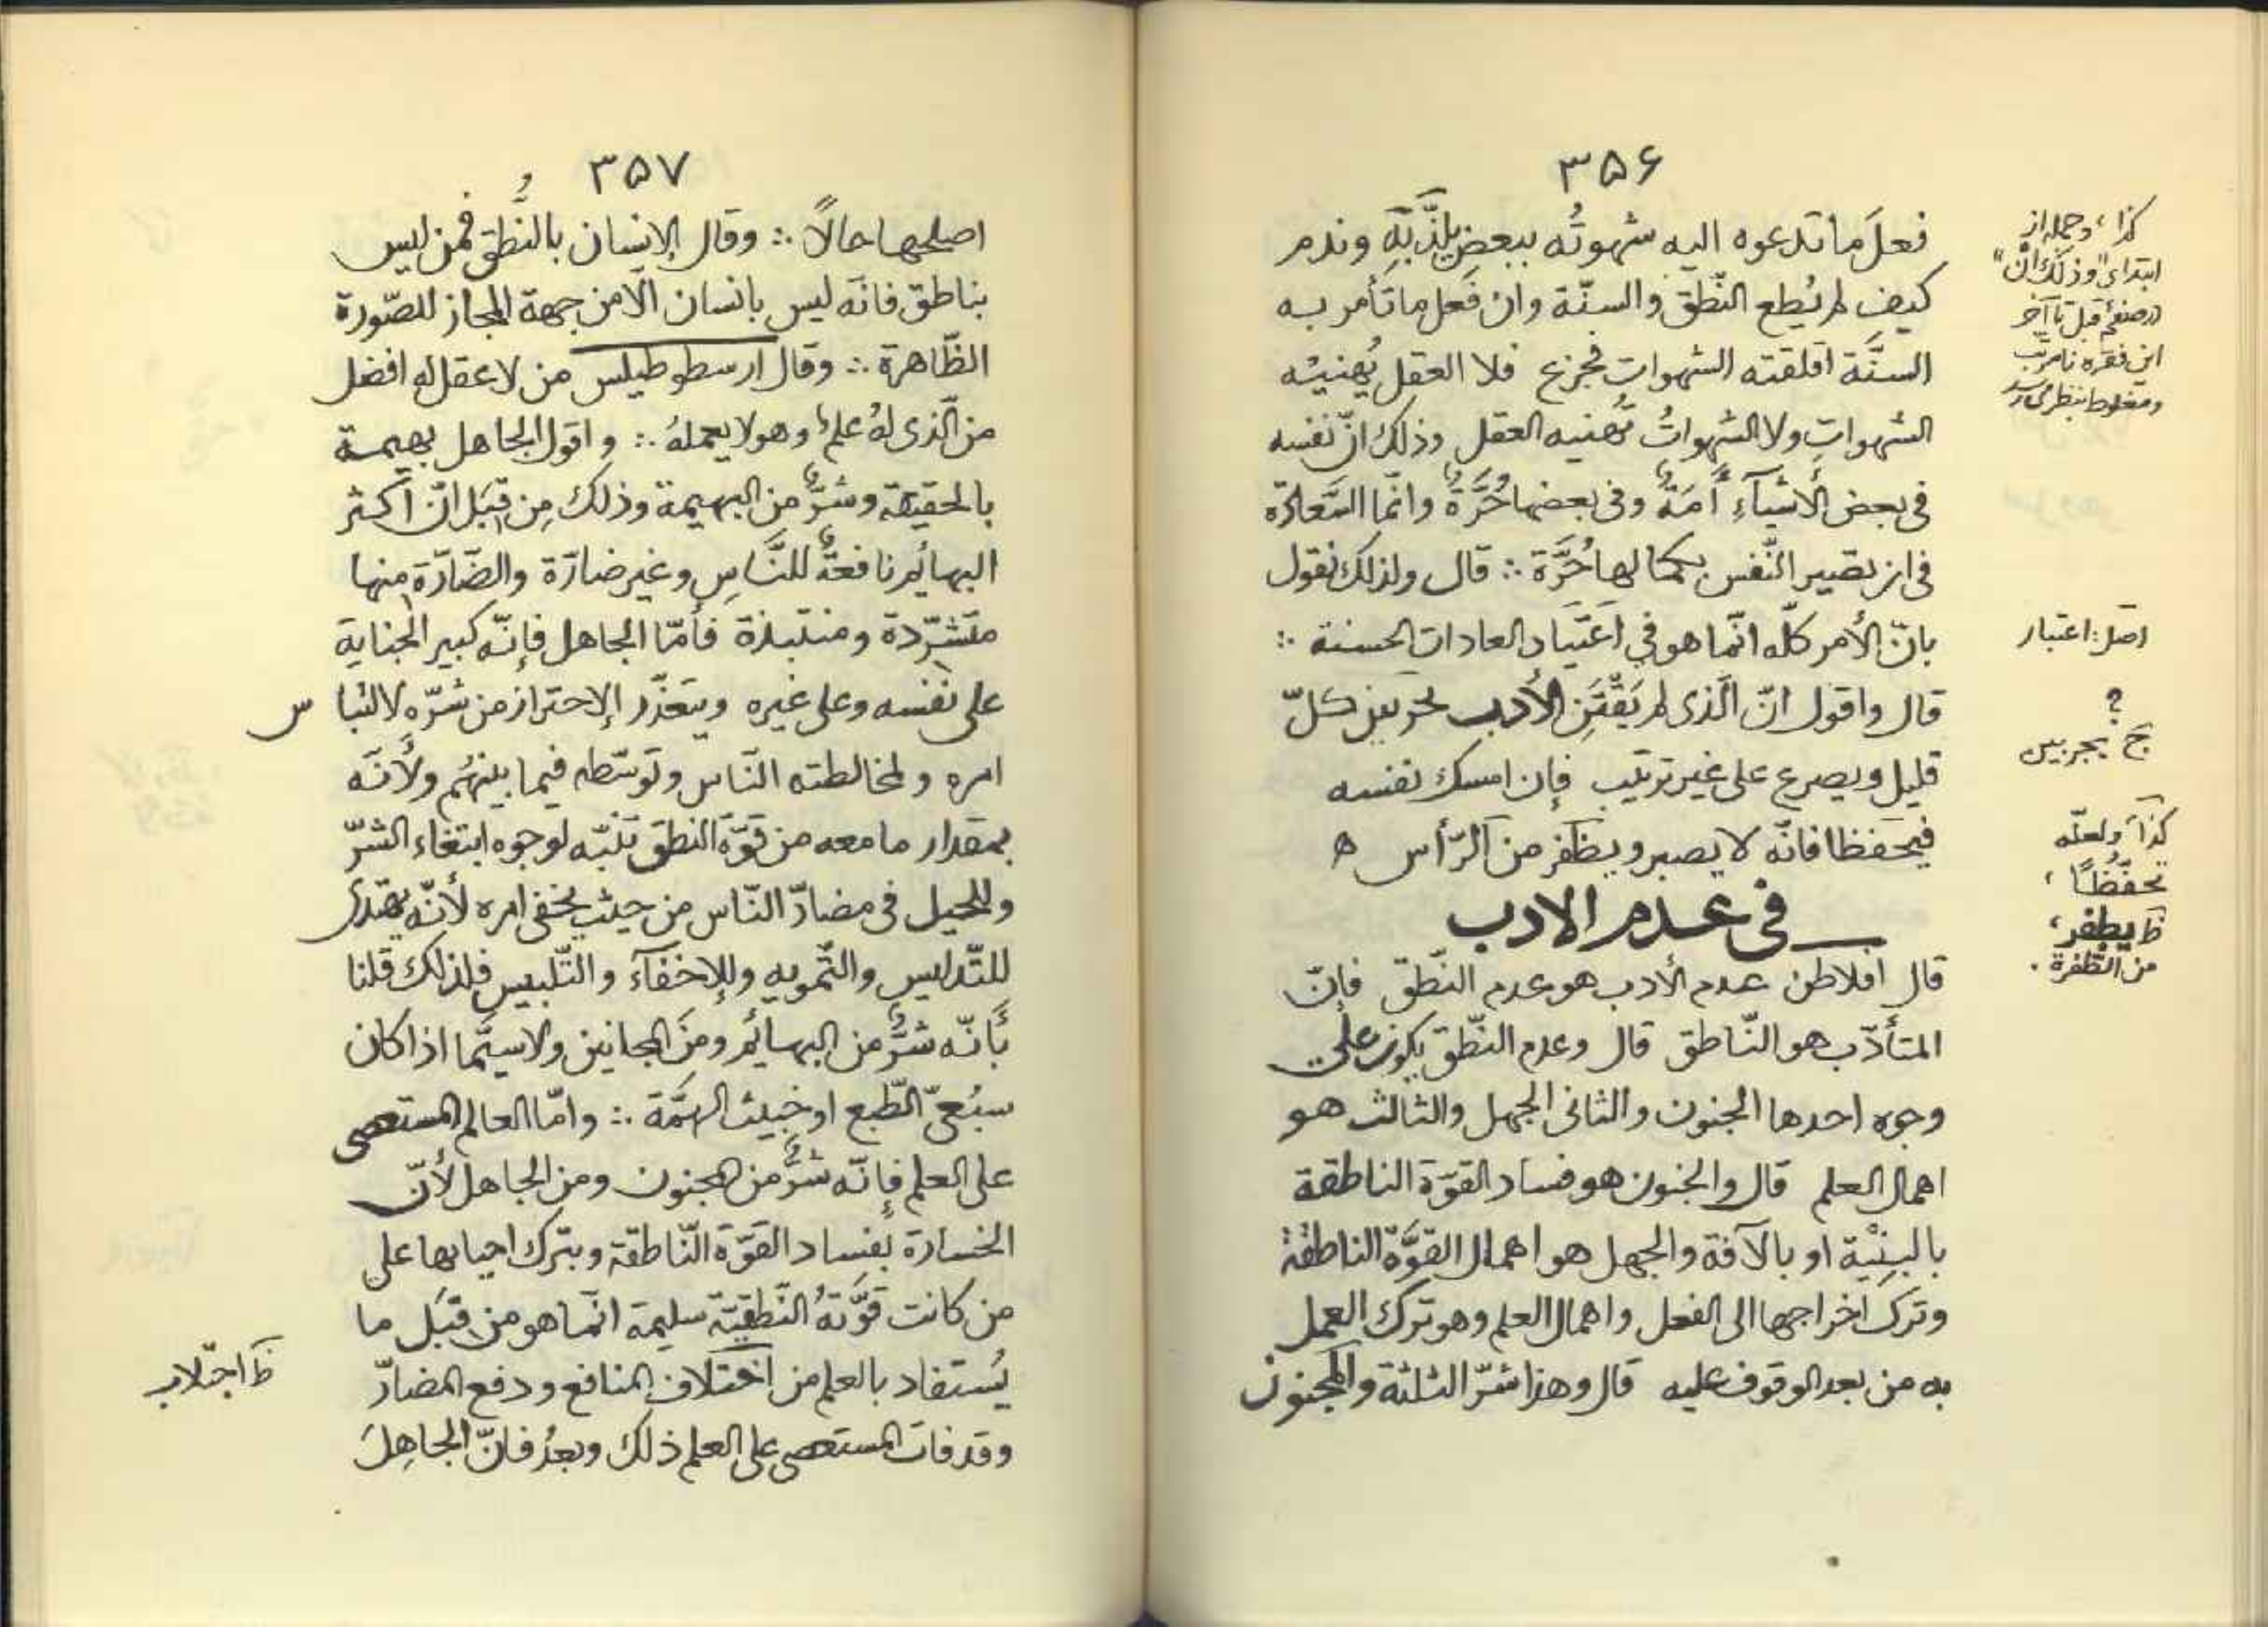 ۳۵۶
فعلَ ما تدعوه اليه شهوتُه ببعض يلذّ به وندم
كيف لم يُطع النّطق والسنّة وان فَعل ما تأمر به
السنَّة اقلقته الشهوات فجزع فلا العقل يُهنيئه
الشهواتِ ولا الشهواتُ تُهنيه العقل وذلك انّ نفسه
فى بعض الأشيآءِ أَمَةٌ وفى بعضها حُرَّةٌ وانّما السَّعادة
فى ان تصير النّفس بكمالها حُرَّة ∴ قال ولذلك نقول
بانّ الأمر كلّه انّما هو في اعتياد العادات الحسنة ∴
قال واقول انّ الّذى لم يَقْتَنِ الأدب كلّ
قليل ويصرع على غير ترتيب فإن امسك نفسه
فيحفظا فانّه لا يصبر ويظفر من الرّأس ه
فى عدم الادب
قال افلاطن عدم الأدب هو عدم النّطق فإنّ
المتأدّب هو النّاطق قال وعدم النّطق يكون على
وجوه احدها الجنون والثانى الجهل والثالث هو
اهمال العلم قال والجنون هو فساد القوّة الناطقة
بالبِنْيَة او بالآفة والجهل هو اهمال القوَّة الناطقة
وترك اخراجها الى الفعل واهمال العلم وهو ترك العمل
به من بعد الوقوف عليه قال وهذا شرّ الثلثة والمجنون
كذا، وجمله از
ابتداى "وذلك انّ"
در صفحهٔ قبل تا آخر
اين فقره نامرتب
ومغلوط بنظر مى‌رسد
اصل: اعتبار
؟
كذا ولعلّه
تحفّظًا،
ظ يطفر،
من الطّفرة .
۳۵۷
اصلحها حالًا ∴ وقال الإنسان بالنُّطق فمن ليس
بناطق فانّه ليس بانسان الّا من جهة المجاز للصّورة
الظّاهرة ∴ وقال ارسطوطيلس من لا عقل له افضل
من الّذى لهُ علمٌ وهو لا يعملهُ ∴ واقول الجاهل بهيمة
بالحقيقة وشرٌّ من البهيمة وذلك مِن قِبَل انّ اكثر
البهائم نافعةٌ للنَّاسِ وغير ضارّة والضّارّة منها
متشرّدة ومنتبذة فأمّا الجاهل فإنّه كبير الجناية
على نفسه وعلى غيره ويتعذّر الإحتراز من شرّه لالتبا س
امره ولمخالطته النّاس وتوسّطه فيما بينهُم ولأنّه
بمقدار ما معه من قوّة النطق تنبّه لوجوه ابتغاء الشرّ
وللحيل فى مضارّ النّاس من حيث يخفى امره لأنّه يهتدى
للتّدليس والتّمويه وللإخفآء والتّلبيس فلذلك قلنا
بأنّه شرٌّ من البهائم ومن المجانين ولاسيّما اذا كان
سبُعىّ الطّبع او خبيث الهمَّة ∴ وامّا العالم المستعصى
على العلم فإنّه شرٌّ من المجنون ومن الجاهل لأنّ
الخسارة بفساد القوّة النّاطقة وبترك احيائها على
من كانت قوّتهُ النّطقيّة سليمة انّما هو من قِبَل ما
يُستفاد بالعلم من اختلاف المنافع ودفع المضارّ
وقد فات المستعصى على العلم ذلك وبعدُ فانّ الجاهلَ
ظ اجتلاب